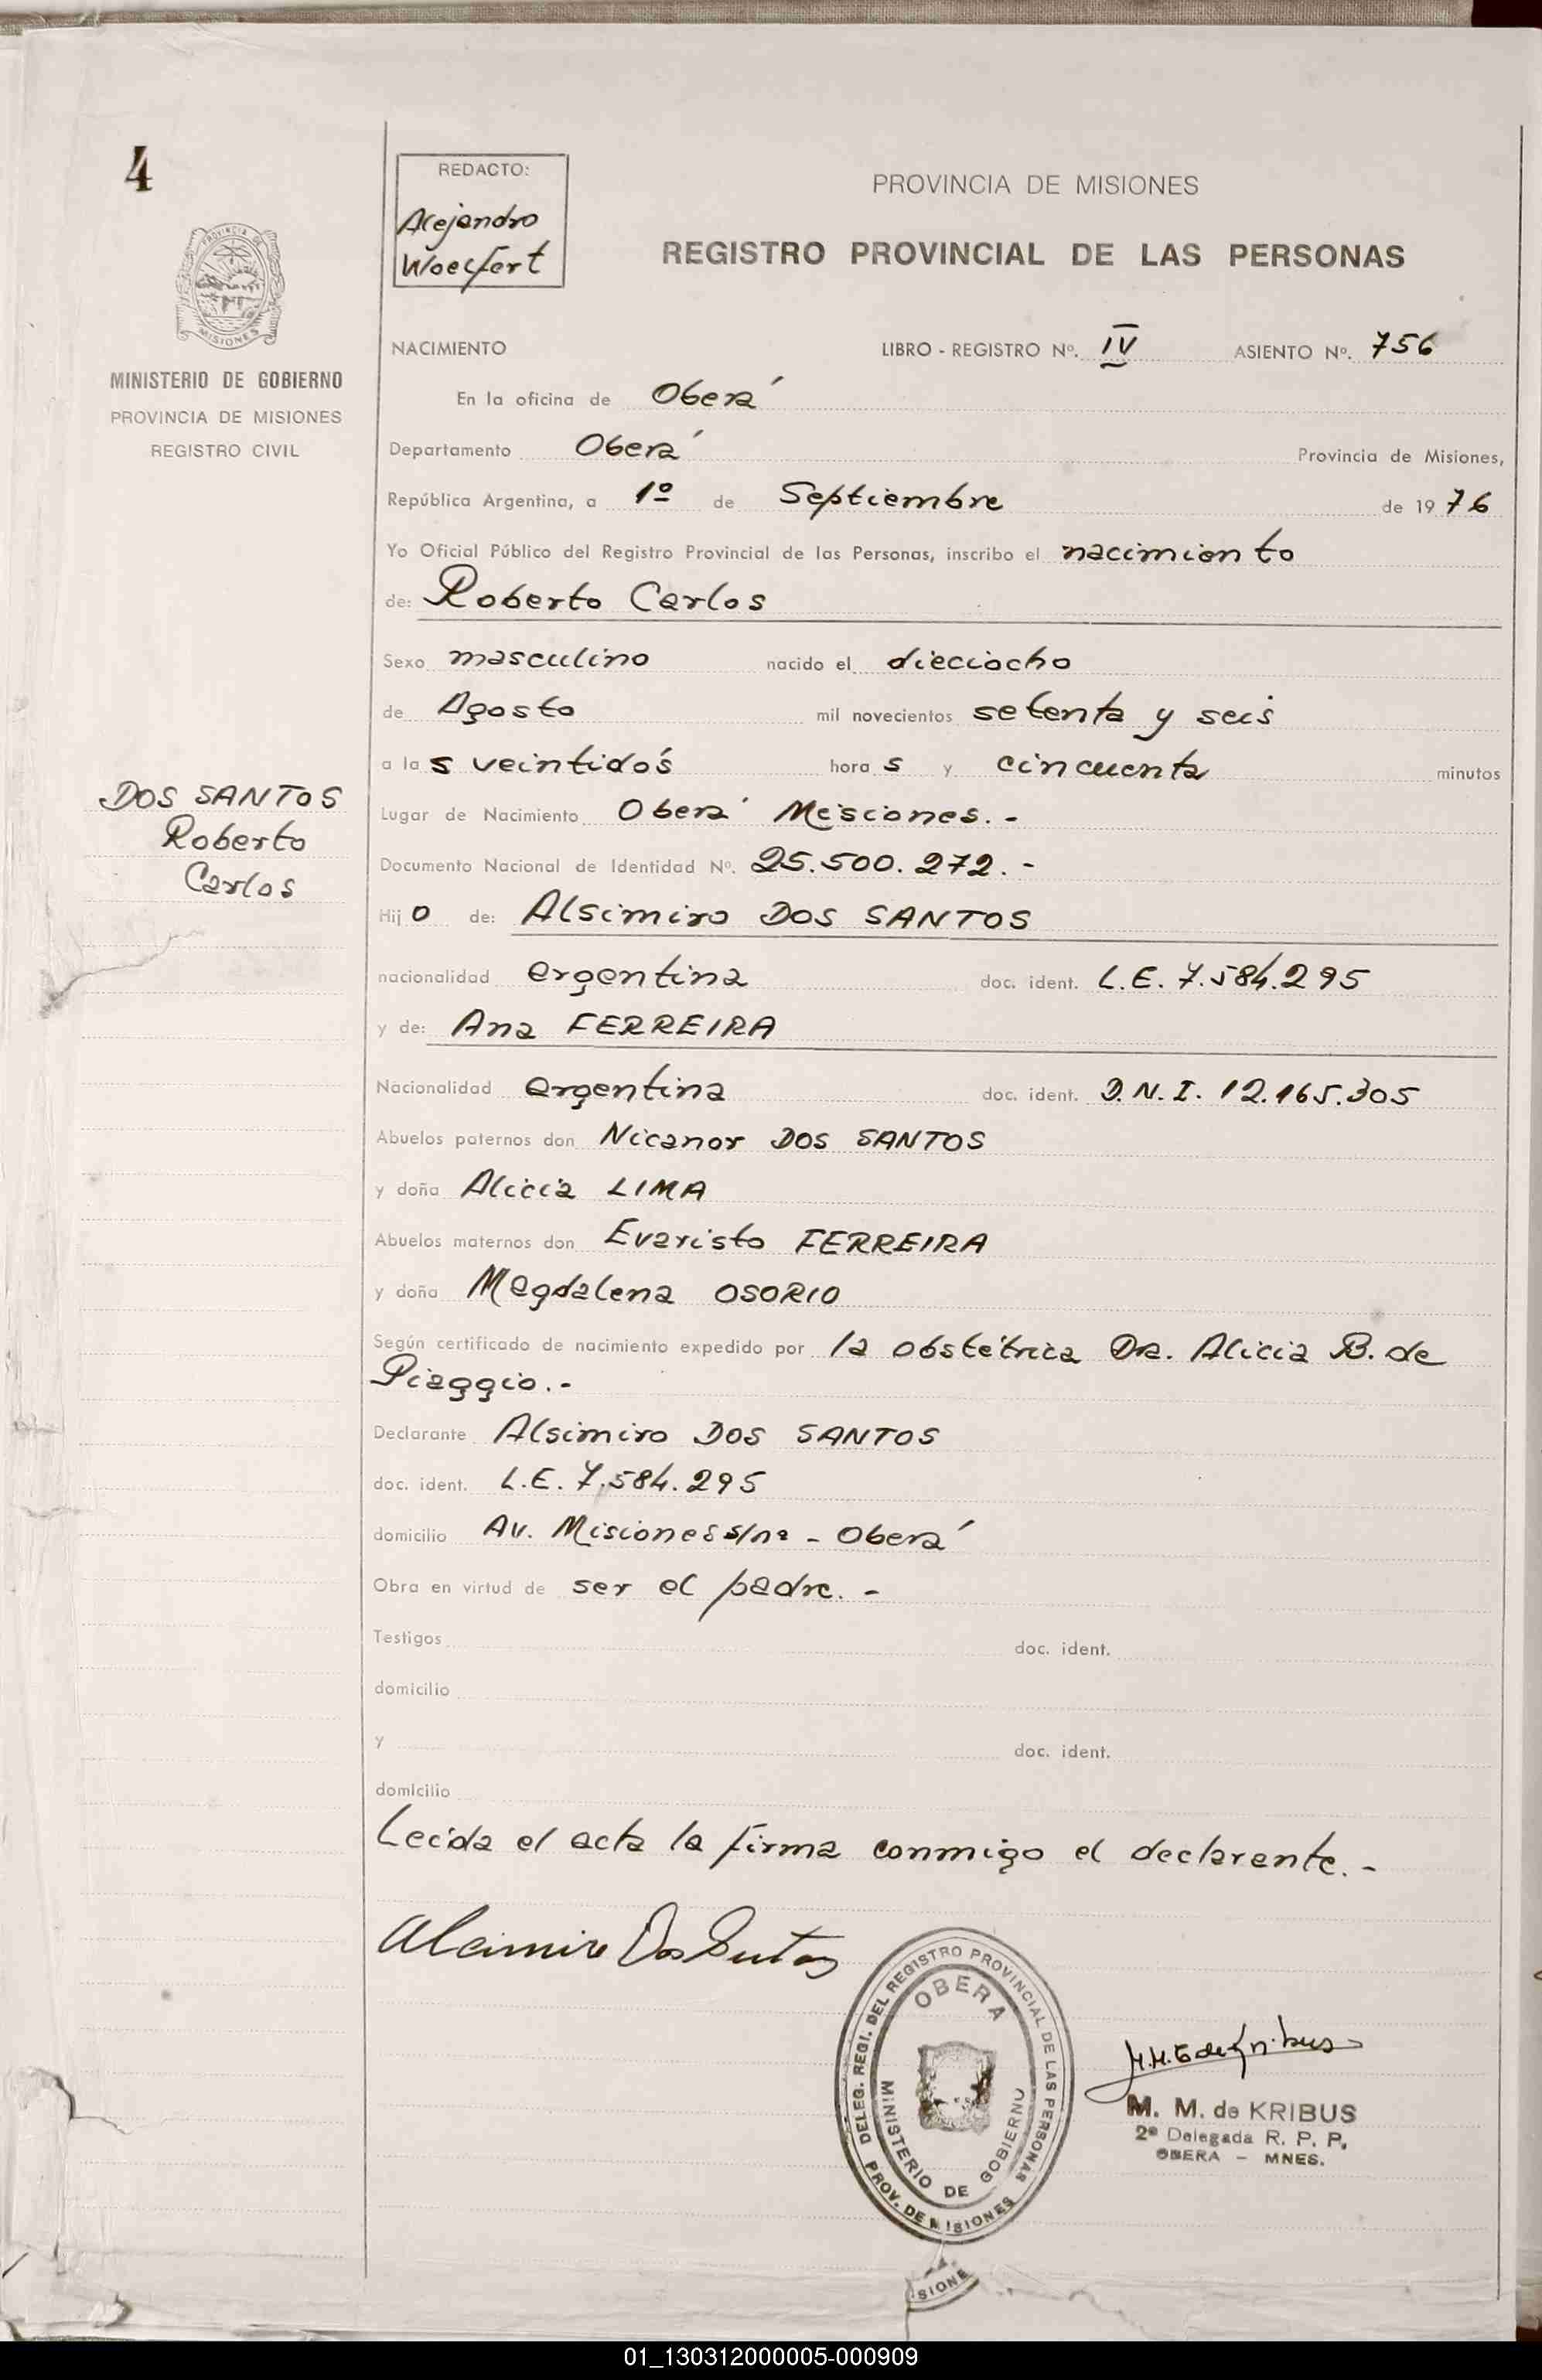 4
REDACTO:
Alejandro
Woelfert
PROVINCIA DE MISIONES
REGISTRO PROVINCIAL DE LAS PERSONAS
PROVINCIA DE
MISIONES
MINISTERIO DE GOBIERNO
PROVINCIA DE MISIONES
REGISTRO CIVIL
NACIMIENTO LIBRO - REGISTRO Nº. IV ASIENTO Nº. 756
En la oficina de Oberá
Departamento Oberá Provincia de Misiones,
República Argentina, a 1º de Septiembre de 1976
Yo Oficial Público del Registro Provincial de las Personas, inscribo el nacimiento
de: Roberto Carlos
Sexo masculino nacido el dieciocho
de Agosto mil novecientos setenta y seis
a las veintidós horas y cincuenta minutos
DOS SANTOS
Roberto
Carlos
Lugar de Nacimiento Oberá Misiones.-
Documento Nacional de Identidad Nº. 25.500.272.-
Hijo de: Alsimiro DOS SANTOS
nacionalidad argentina doc. ident. L.E. 7.584.295
y de: Ana FERREIRA
Nacionalidad argentina doc. ident. D.N.I. 12.165.305
Abuelos paternos don Nicanor DOS SANTOS
y doña Alicia LIMA
Abuelos maternos don Evaristo FERREIRA
y doña Magdalena OSORIO
Según certificado de nacimiento expedido por la obstétrica Dra. Alicia B. de
Piaggio.-
Declarante Alsimiro DOS SANTOS
doc. ident. L.E. 7.584.295
domicilio Av. Misiones s/nº - Oberá
Obra en virtud de ser el padre.-
Testigos doc. ident.
domicilio
y doc. ident.
domicilio
Leida el acta la firma conmigo el declarante.-
Alcimiro Dos Santos
DELEG. REGI. DEL REGISTRO PROVINCIAL DE LAS PERSONAS
PROV. DE MISIONES
OBERA
MINISTERIO DE GOBIERNO
M. M. de KRIBUS
2ª Delegada R. P. P.
OBERA - MNES.
SIONE
01_130312000005-000909